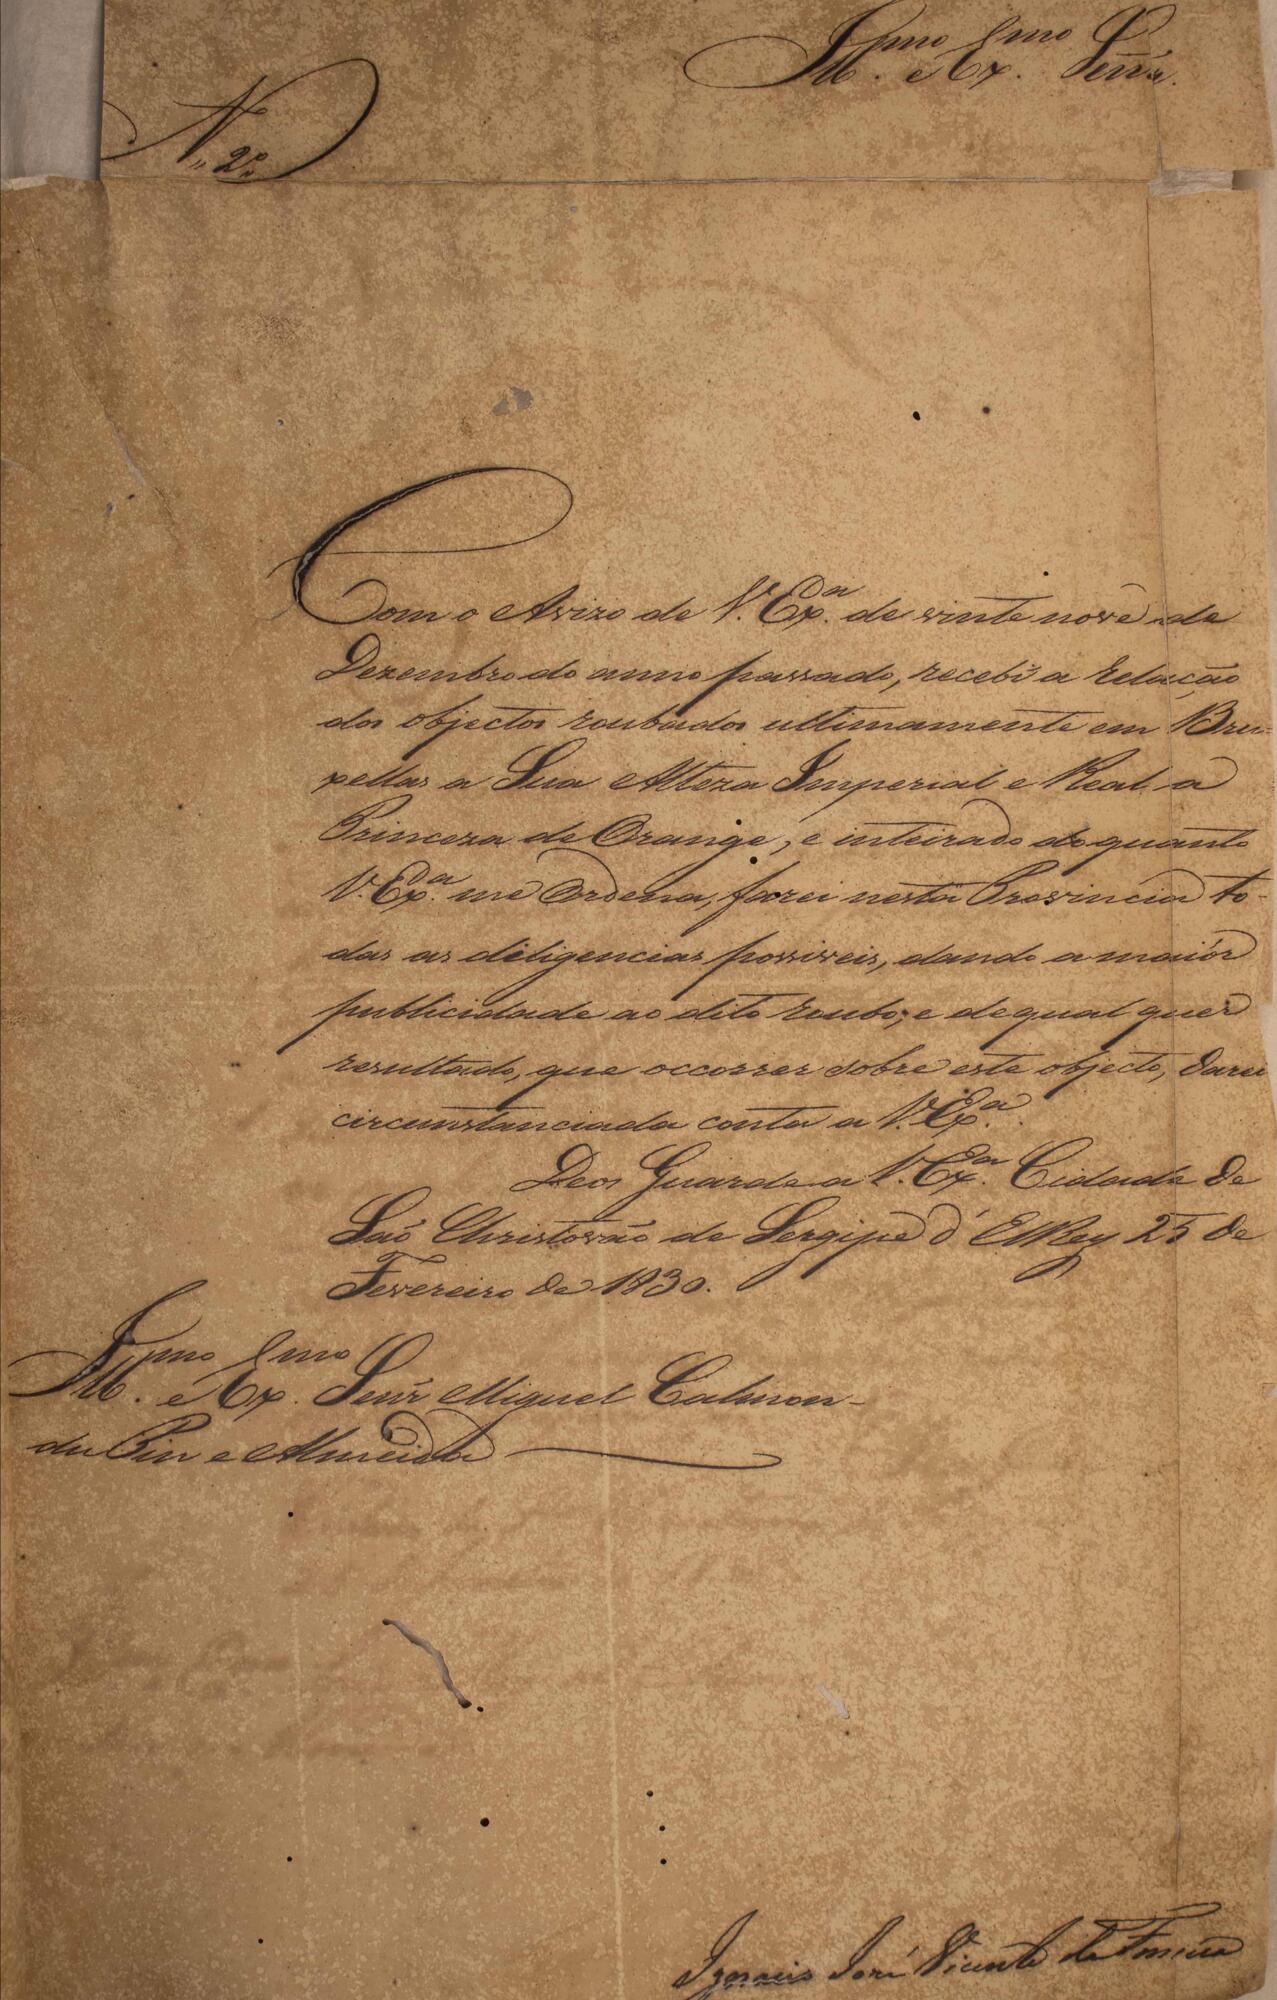 Ill.mo e Ex.mo Senr.
N. 2.o
Com o Avizo de V. Ex.a de vinte nove de
Dezembro do anno passado, recebi a relação
dos objectos roubados ultimamente em Bru-
xellas a Sua Alteza Imperial e Real a
Princeza de Orange, e inteirado de quanto
V. Ex.a me Ordena, farei nesta Provincia to-
das as diligencias possiveis, dando a maiór
publicidade ao dito roubo; e de qual quer
resultado, que occorrer sobre este objecto, darei
circunstanciada conta a V. Ex.a.
Deos Guarde a V. Ex.a Cidade de
Saõ Christovão de Sergipe d' ElRey 25 de
Fevereiro de 1830.
Ill.mo e Ex.mo Senr Miguel Calmon
du Pin e Almeida
Ignacio José Vicente da Fonseca